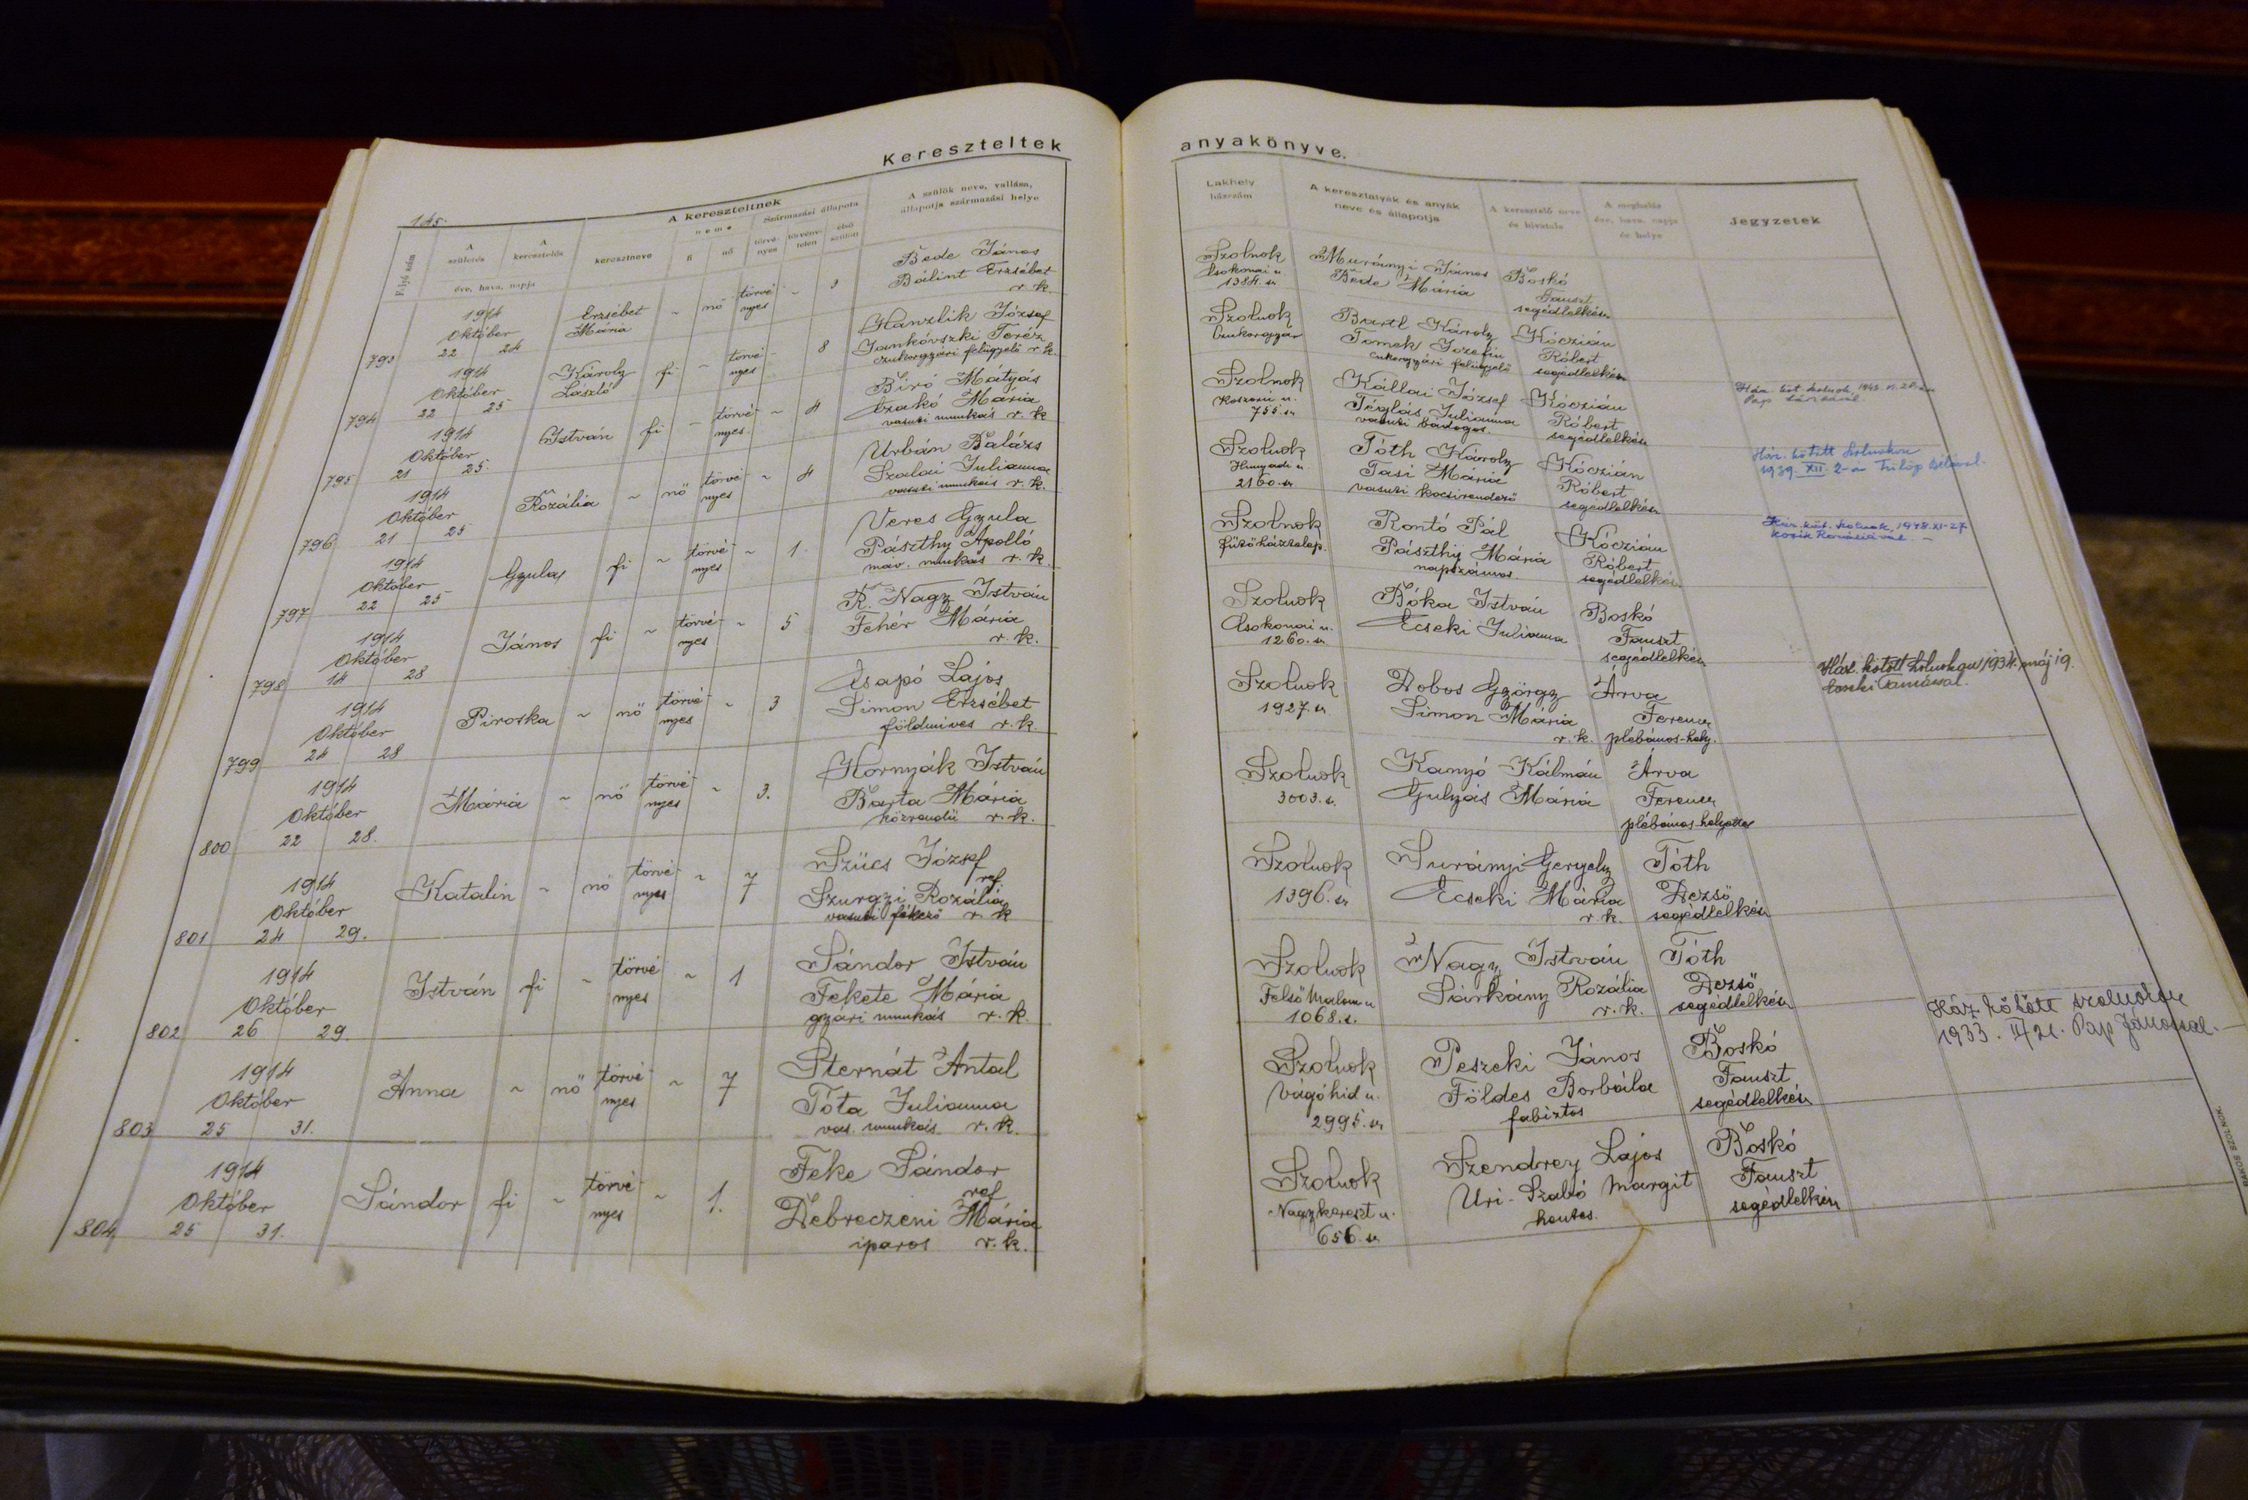 Kereszteltek
145.
A kereszteltnek
A szülők neve, vallása,
állapotja származási helye
Folyó szám
A születés
A keresztelés
éve, hava, napja
keresztneve
neme
fi
nő
Származási állapota
törvé-
nyes
törvény-
telen
első
szülött
793
1914
Október
22 24
Erzsébet
Mária
~ nő törvé-
nyes ~ 3
Bede János
Bálint Erzsébet
r. k.
794
1914
Október
22 25
Károly
László
fi ~ törvé-
nyes ~ 8
Hanzlik József
Jankovszki Teréz
cukorgyári felügyelő r. k.
795
1914
Október
21 25.
István
fi ~ törvé-
nyes. ~ 4
Biró Mátyás
Czakó Mária
vasuti munkás r. k
796
1914
Október
21 25
Rozália
~ nő törvé-
nyes ~ 4
Urbán Balázs
Szalai Julianna
vasuti munkás r. k.
797
1914
Október
22 25
Gyula
fi ~ törvé-
nyes ~ 1.
Veres Gyula
Pászthy Apolló
máv. munkás r. k.
798
1914
Október
14 28
János
fi ~ törvé-
nyes ~ 5
R. Nagy István
Fehér Mária
r. k.
799
1914
Október
24 28
Piroska
~ nő törvé-
nyes ~ 3
Csapó Lajos
Simon Erzsébet
földmives r. k.
800
1914
Október
22 28.
Mária
~ nő törvé-
nyes ~ 3.
Hornyák István
Barta Mária
közrendű r. k.
801
1914
Október
24 29.
Katalin
~ nő törvé-
nyes ~ 7
Szücs József
ref
Szurgyi Rozália
vasuti fékező r. k
802
1914
Október
26 29.
István
fi ~ törvé-
nyes ~ 1
Sándor István
Fekete Mária
gyári munkás r. k.
803
1914
Október
25 31.
Anna
~ nő törvé-
nyes ~ 7
Sternát Antal
Tóta Julianna
vas. munkás r. k.
804
1914
Október
25 31.
Sándor
fi ~ törvé-
nyes ~ 1.
Feke Sándor
ref
Debreczeni Mária
iparos r. k.
anyakönyve.
Lakhely
házszám
A keresztatyák és anyák
neve és állapotja
A keresztelő neve
és hivatala
A meghalás
éve, hava, napja
és helye
Jegyzetek
Szolnok
Csokonai u
1384. sz
Murányi János
Bede Mária
Boskó
Fauszt
segédlelkész
Szolnok
Cukorgyár
Bartl Károly
Tomek Jozefin
cukorgyári felügyelő
Kóczián
Róbert
segédlelkész
Szolnok
Koszorú u.
755. sz
Kállai József
Téglás Julianna
vasuti bádogos.
Kóczián
Róbert
segédlelkész
Pap Sárával.
Szolnok
Hunyadi u
2160. sz
Tóth Károly
Tasi Mária
vasuti kocsirendező
Kóczián
Róbert
segédlelkész
Ház. kötött Szolnokon
1939. XII. 2-án Fülöp Bélával.
Szolnok
fűtőháztelep.
Rontó Pál
Pászthy Mária
napszámos
Kóczián
Róbert
segédlelkész
Ház. köt. Szolnok, 1948. XI-27
Szolnok
Csokonai u.
1260. sz
Bóka István
Ecseki Julianna
Boskó
Fauszt
segédlelkész
Szolnok
1927. sz
Dobos György
Simon Mária
r. k.
Árva
Ferencz
plébános-hely.
Ház. kötött Szolnokon 1934. máj 19.
Tamással.
Szolnok
3003. sz.
Kanyó Kálmán
Gulyás Mária
Árva
Ferencz
plébános-helyettes
Szolnok
1396. sz
Surányi Gergely
Ecseki Mária
r. k.
Tóth
Dezső
segédlelkész
Szolnok
Felső Malom u
1068. sz.
Nagy István
Sárkány Rozália
r. k.
Tóth
Dezső
segédlelkész
Szolnok
Vágóhid u.
2995. sz
Peszeki János
Földes Borbála
fabiztos
Boskó
Fauszt
segédlelkész
Ház kötött Szolnokon
1933. II/21. Pap Jánossal.
Szolnok
Nagykereszt u.
656. sz
Szendrey Lajos
Uri-Szabó Margit
hentes.
Boskó
Fauszt
segédlelkész